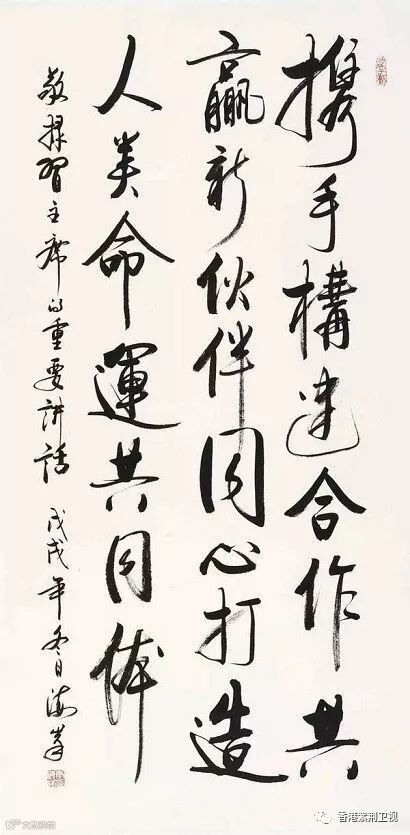 携手構建合作共
赢新伙伴同心打造
人类命運共同体
敬習主席的重要讲話 戊戌年冬日海峯
香港紫荆卫视